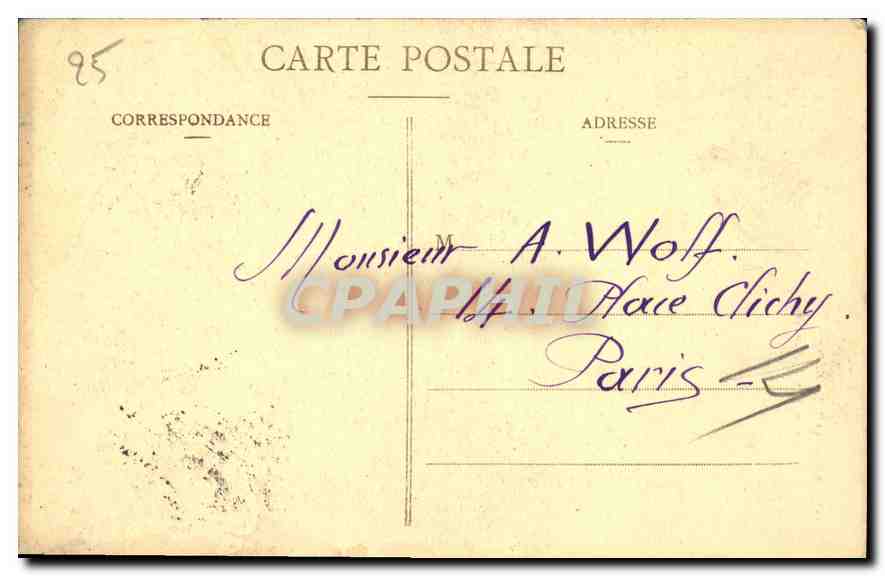 25
CARTE POSTALE
CORRESPONDANCE
ADRESSE
M
Monsieur A. Wolf.
14. Place Clichy.
Paris
CPAPHIL